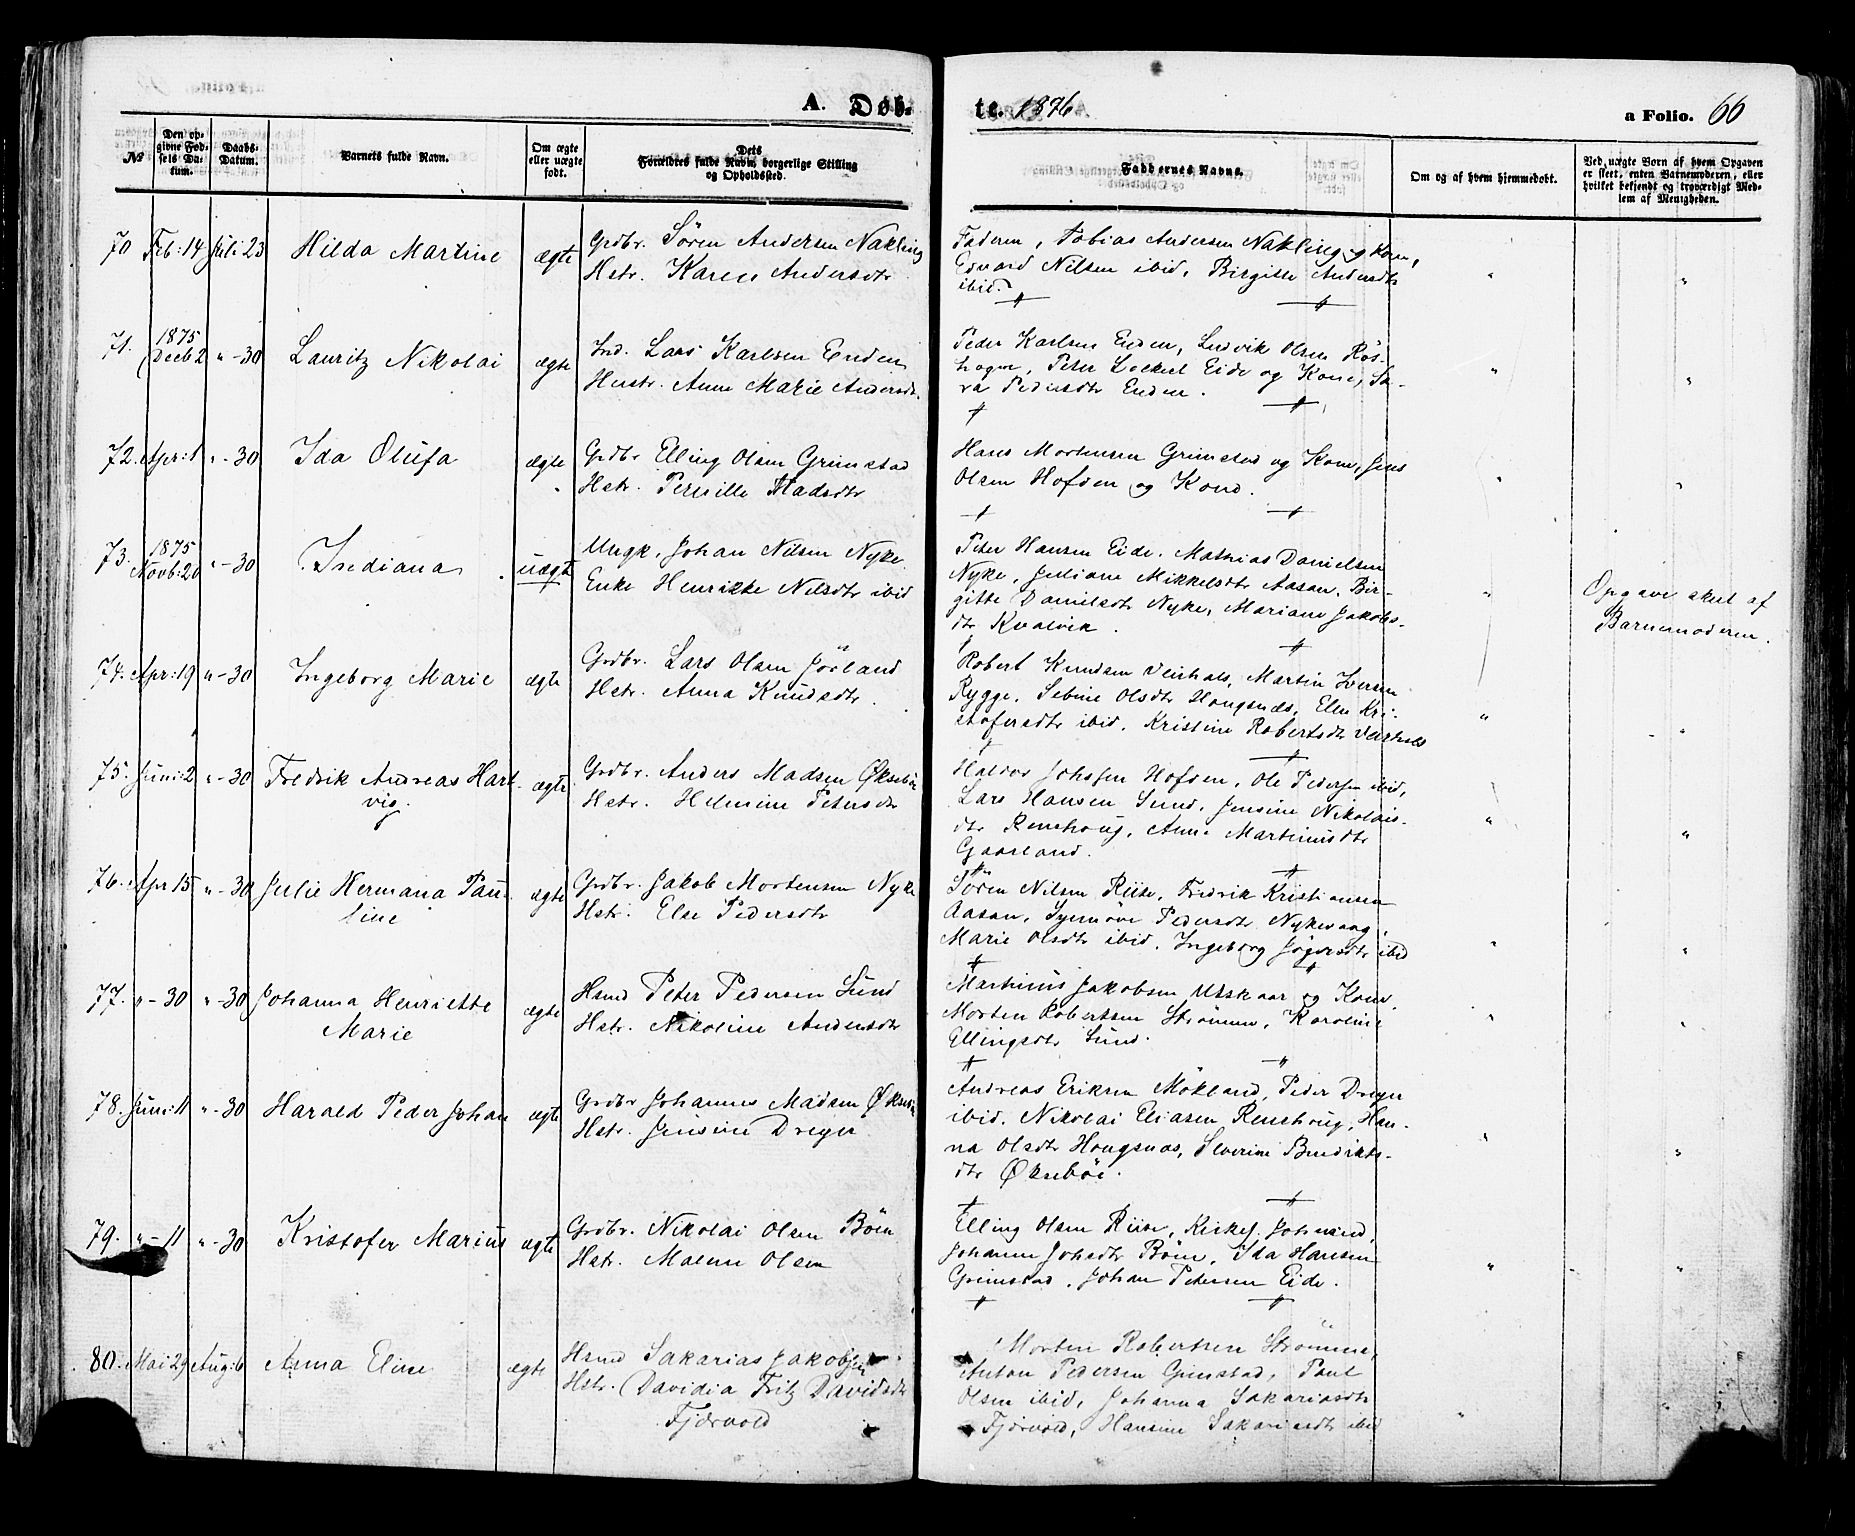 A. Døb-
te. 1876
a Folio. 66
№
Den op-
givne Fød-
sels Da-
tum.
Daabs-
Datum.
Barnets fulde Navn.
Om ægte
eller uægte
født.
Dets
Forældres fulde Navn, borgerlige Stilling
og Opholdssted.
Faddernes Navne.
Om og af hvem hjemmedøbt.
Ved uægte Børn af hvem Opgaven
er skeet, enten Barnemoderen, eller
hvilket bekjendt og troværdigt Med-
lem af Menigheden.
70 Feb: 14 Juli 23 Hilda Martine ægte
Grdbr. Søren Andersen Nakling
Hstr. Karen Andersdtr
Faderen, Tobias Andersen Nakling og Kone,
Edvard Nilsen ibid, Birgitte Andersdtr
ibid.
71. 1875
Decb 2 " -30 Lauritz Nikolai ægte
Ind. Lars Karlsen Enden
Hustr. Anne Marie Andersdt.
Peder Karlsen Enden, Ludvik Olsen Røs-
hagen, Peter Lockert Eide og Kone, Sa-
ra Pedersdtr Enden.
72. Apr: 1 " -30 Ida Olufa ægte
Grdbr Elling Olsen Grimstad
Hstr. Pernille Madsdtr
Hans Mortensen Grimstad og Kone, Jens
Olsen Hofden og Kone.
73. 1875
Novb: 20 " -30 Indiana uægte
Ungk. Johan Nilsen Nyke
Enke Henrikke Nilsdtr ibid
Peter Hansen Eide. Mathias Danielsen
Nyke, Juliane Mikkelsdtr Aasan, Bir-
gitte Danielsdtr Nyke, Mariane Jakobs-
dtr Kvalvik.
Opgave skeet af
Barnemoderen.
74. Apr: 19 " -30 Ingeborg Marie ægte
Grdbr. Lars Olsen Jörland
Hstr. Anna Knudsdtr.
Robert Knudsen Veirhals, Martin Iversen
Rygge, Sebine Olsdtr Hougsnæs, Elen Kri-
stofersdtr ibid, Kristine Robertsdtr Veirhals
75. Juni: 2 " -30 Fredrik Andreas Hart-
vig. ægte
Grdbr. Anders Madsen Øksebøe
Hstr. Helmine Petersdtr
Haldor Johnsen Hofden, Ole Pedersen ibid,
Lars Hansen Sund, Jensine Nikolais-
dtr Renehoug, Anne Martinusdtr
Gaarland.
76. Apr 15 " -30 Julie Hermana Pau-
line ægte
Grdbr. Jakob Mortensen Nyke
Hstr. Else Pedersdtr
Søren Nilsen Riise, Fredrik Kristiansen
Aasan, Synnøve Pedersdtr Nykevaag,
Marie Olsdtr ibid. Ingeborg ibid
77. " -30 " -30 Johanna Henriette
Marie ægte
Hsmd Peter Pedersen Sund
Hstr. Nikoline Andersdtr
Martinus Jakobsen Utskaar og Kone,
Morten Robertsen Strömme, Karoline
Ellingsdtr Sund.
78. Juni: 11 " -30 Harald Peder Johan ægte
Grdbr Johannes Madsen Øksebøe
Hstr. Jensine Dreyer
Andreas Eriksen Mökland, Peder Dreyer
ibid. Nikolai Eliasen Renehoug, Han-
na Olsdtr Hougsnæs, Severine Benedikts-
dtr Øksebøe.
79. " -11 " -30 Kristofer Marius ægte
Grdbr. Nikolai Olsen Böen
Hstr. Malene Olsen
Elling Olsen Riise, Kirkes.
Johanne Johsdtr Böen, Ida Hansen
Grimstad, Johan Petersen Eide.
80. Mai 29 Aug: 6 Anna Eline ægte
Hsmd Sakarias Jakobsen
Hstr. Davidia Fritz Davidsdtr
Fjærvold
Morten Robertsen Strömme,
Anton Pedersen Grimstad, Paul
Olsen ibid, Johanna Sakariasdtr
Fjærvold, Hansine Sakariasdtr ibid